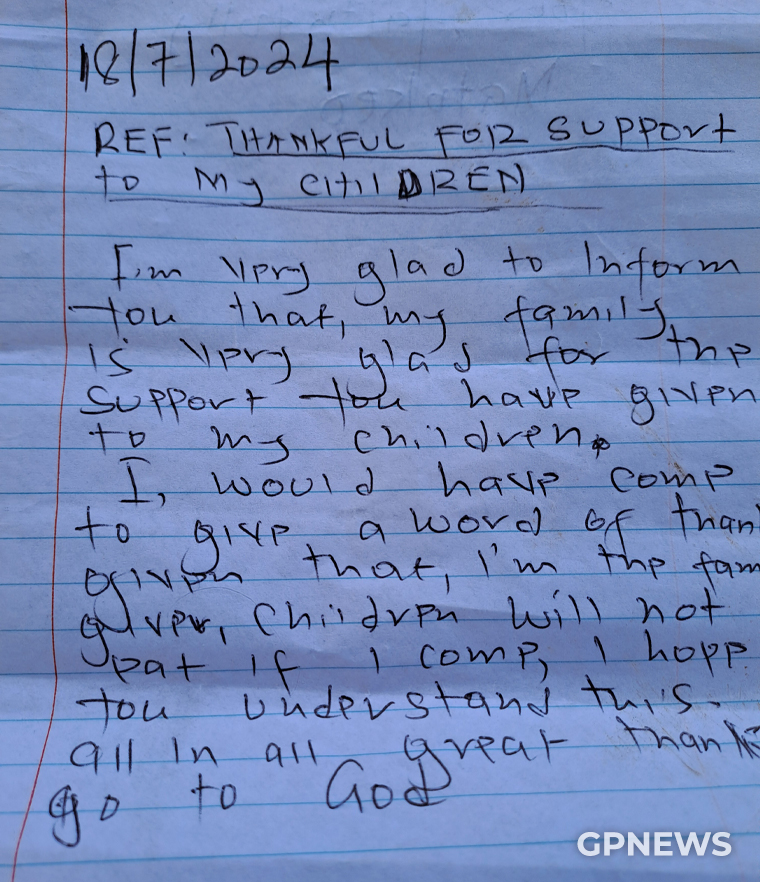 18/7/2024
REF: THANKFUL FOR SUPPORT
to My CHILDREN
I'm very glad to Inform
you that, my family
is very glad for the
support you have given
to my children.
I, would have come
to give a word of than
given that, I'm the fam
giver, children will not
eat if I come, I hope
you understand this.
all in all great thank
go to God
GPNEWS